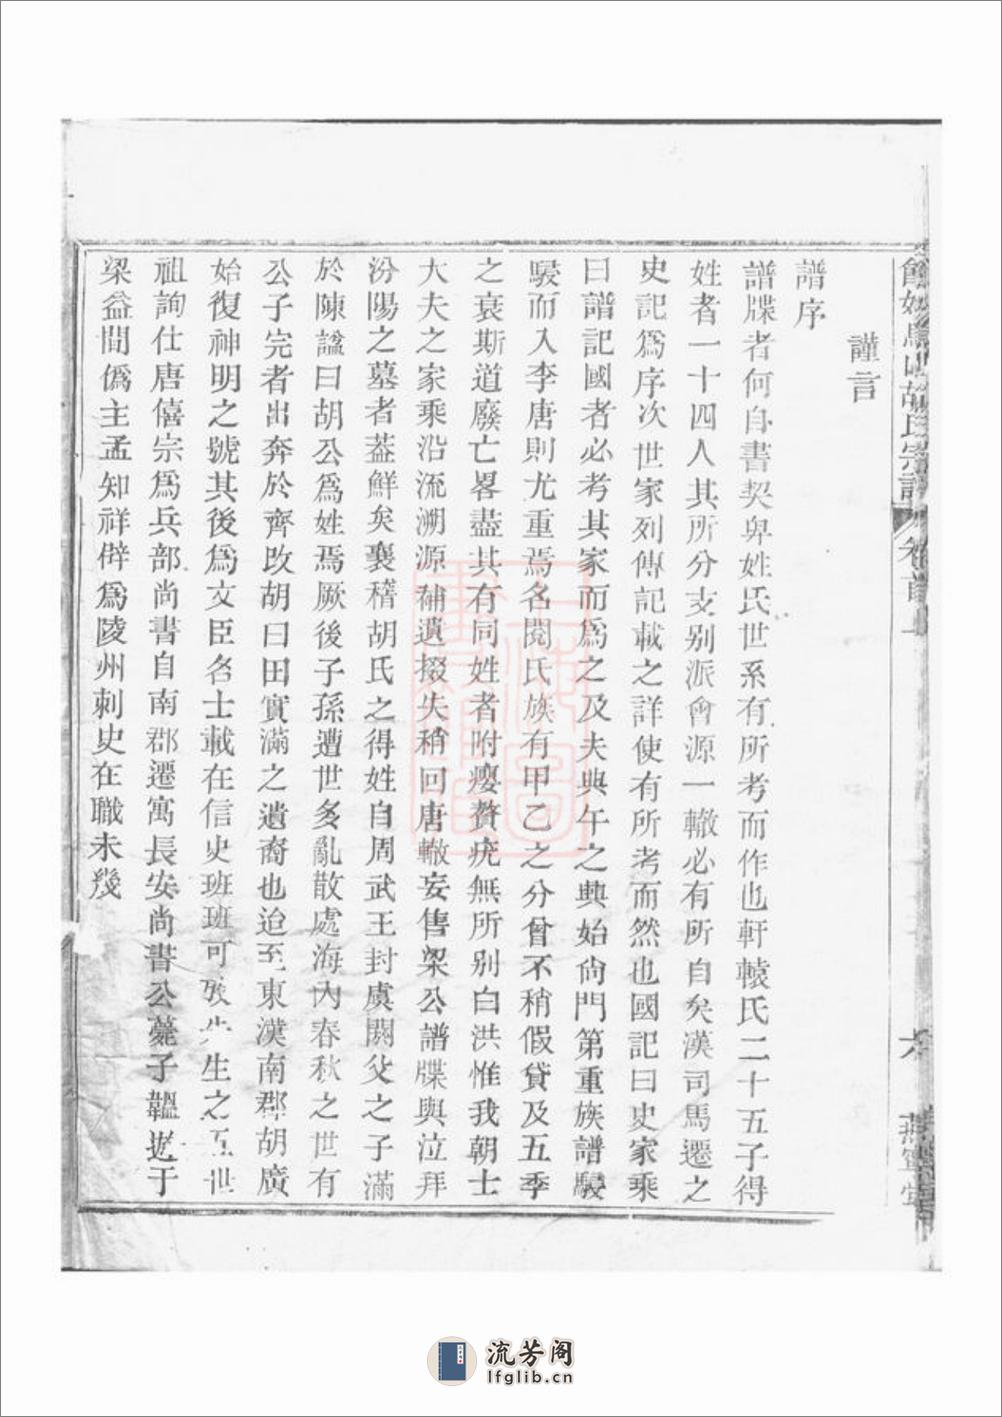 謹言
譜序
譜牒者何自書契卑姓氏世系有所考而作也軒轅氏二十五子得
姓者一十四人其所分支别派會源一轍必有所自矣漢司馬遷之
史記爲序次世家列傳記載之詳使有所考而然也國記曰史家乘
曰譜記國者必考其家而爲之及夫典午之興始尙門第重族譜駸
駸而入李唐則尤重焉名閥氏族有甲乙之分曾不稍假貸及五季
之衰斯道廢亡畧盡其有同姓者咐癭贅疣無所別白洪惟我朝士
大夫之家乘沿流溯源補遺掇失稍回唐轍妄售梁公譜牒與泣拜
汾陽之墓者葢鮮矣襄稽胡氏之得姓自周武王封虞閼父之子滿
於陳諡曰胡公爲姓焉厥後子孫遭世多亂散處海內春秋之世有
公子完者出奔於齊改胡曰田實滿之遺裔也迨至東漢南郡胡廣
始復神明之號其後爲文臣名士載在信史班班可攷先生之五世
祖詢仕唐僖宗爲兵部尚書自南郡遷寓長安尚書公薨子韞遊于
梁益間僞主孟知祥辟爲陵州刺史在職未幾
山胡氏宗譜
卷首一
六
流芳阁
lfglib.cn